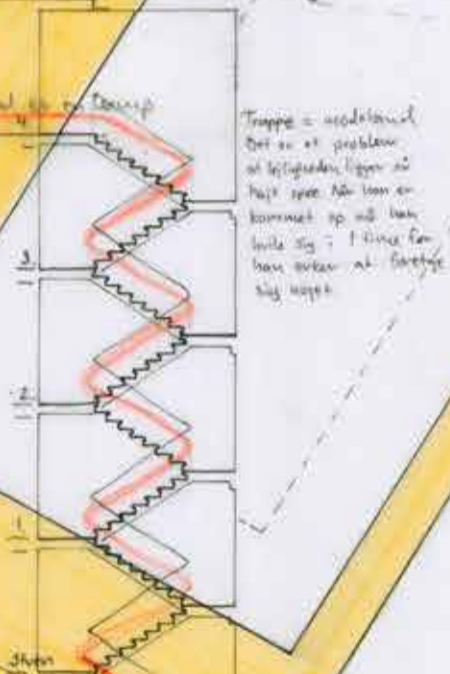 4
Trappe = modstand
Det er et problem
at lejligheden ligger så
højt oppe. Når han er
kommet op må han
hvile sig 1 time før
han orker at foretage
sig noget
3.
2.
1.
Stuen